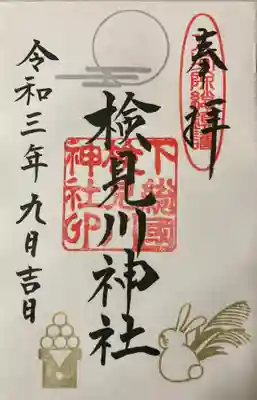 奉拝
検見川神社
下総國
神社印
令和三年九月吉日